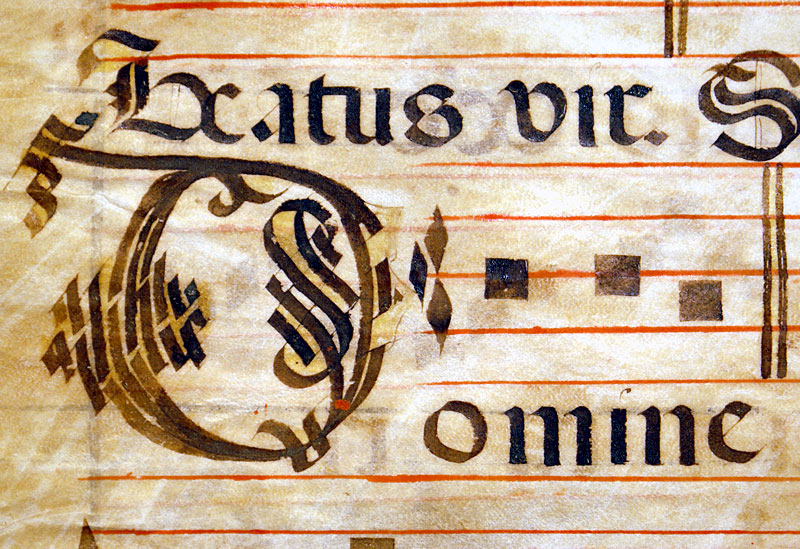 Beatus vir. S
Domine